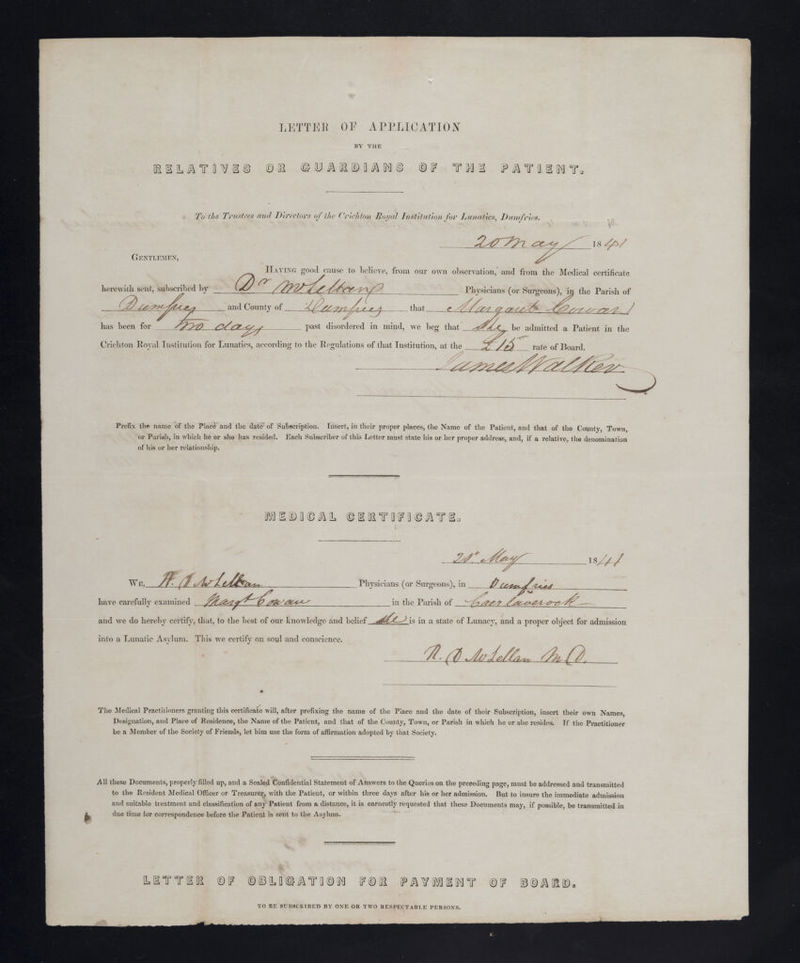 LETTER OF APPLICATION
BY THE
RELATIVES OR GUARDIANS OF THE PATIENT.
To the Trustees and Directors of the Crichton Royal Institution for Lunatics, Dumfries.
20 May 1841
GENTLEMEN,
HAVING good cause to believe, from our own observation, and from the Medical certificate
herewith sent, subscribed by Dr McLellan Physicians (or Surgeons), in the Parish of
Dumfries and County of Dumfries that Margaret Cowan
has been for two days past disordered in mind, we beg that she be admitted a Patient in the
Crichton Royal Institution for Lunatics, according to the Regulations of that Institution, at the £15 rate of Board.
James Walker
Prefix the name of the Place and the date of Subscription. Insert, in their proper places, the Name of the Patient, and that of the County, Town,
or Parish, in which he or she has resided. Each Subscriber of this Letter must state his or her proper address, and, if a relative, the denomination
of his or her relationship.
MEDICAL CERTIFICATE.
May 1841
We, R. D McLellan Physicians (or Surgeons), in Dumfries
have carefully examined Margt Cowan in the Parish of Caerlaverock
and we do hereby certify, that, to the best of our knowledge and belief she is in a state of Lunacy, and a proper object for admission
into a Lunatic Asylum. This we certify on soul and conscience.
R. D McLellan M.D.
The Medical Practitioners granting this certificate will, after prefixing the name of the Place and the date of their Subscription, insert their own Names,
Designation, and Place of Residence, the Name of the Patient, and that of the County, Town, or Parish in which he or she resides. If the Practitioner
be a Member of the Society of Friends, let him use the form of affirmation adopted by that Society.
All these Documents, properly filled up, and a Sealed Confidential Statement of Answers to the Queries on the preceding page, must be addressed and transmitted
to the Resident Medical Officer or Treasurer, with the Patient, or within three days after his or her admission. But to insure the immediate admission
and suitable treatment and classification of any Patient from a distance, it is earnestly requested that these Documents may, if possible, be transmitted in
due time for correspondence before the Patient is sent to the Asylum.
LETTER OF OBLIGATION FOR PAYMENT OF BOARD.
TO BE SUBSCRIBED BY ONE OR TWO RESPECTABLE PERSONS.